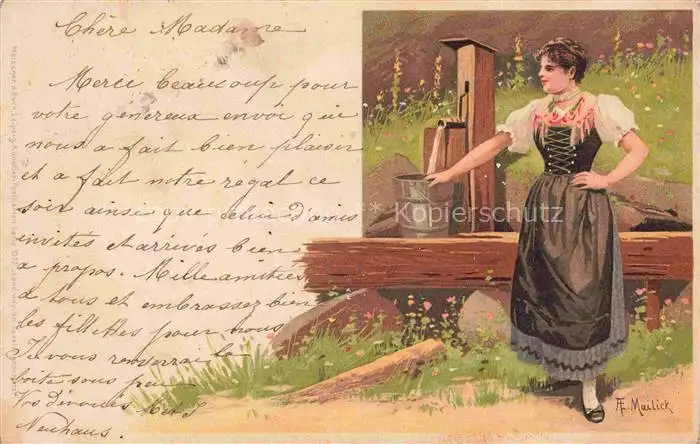 Chère Madame
Merci beaucoup pour
votre généreux envoi qui
nous a fait bien plaisir
et a fait notre régal ce
soir ainsi que celui d'amis
invités et arrivés bien
a propos. Mille amitiés
a tous et embrassez bien
les fillettes pour nous
Je vous renverrai la
boite sous peu
Vos dévoués
Neuhaus.
© Kopierschutz
AF. Mailick